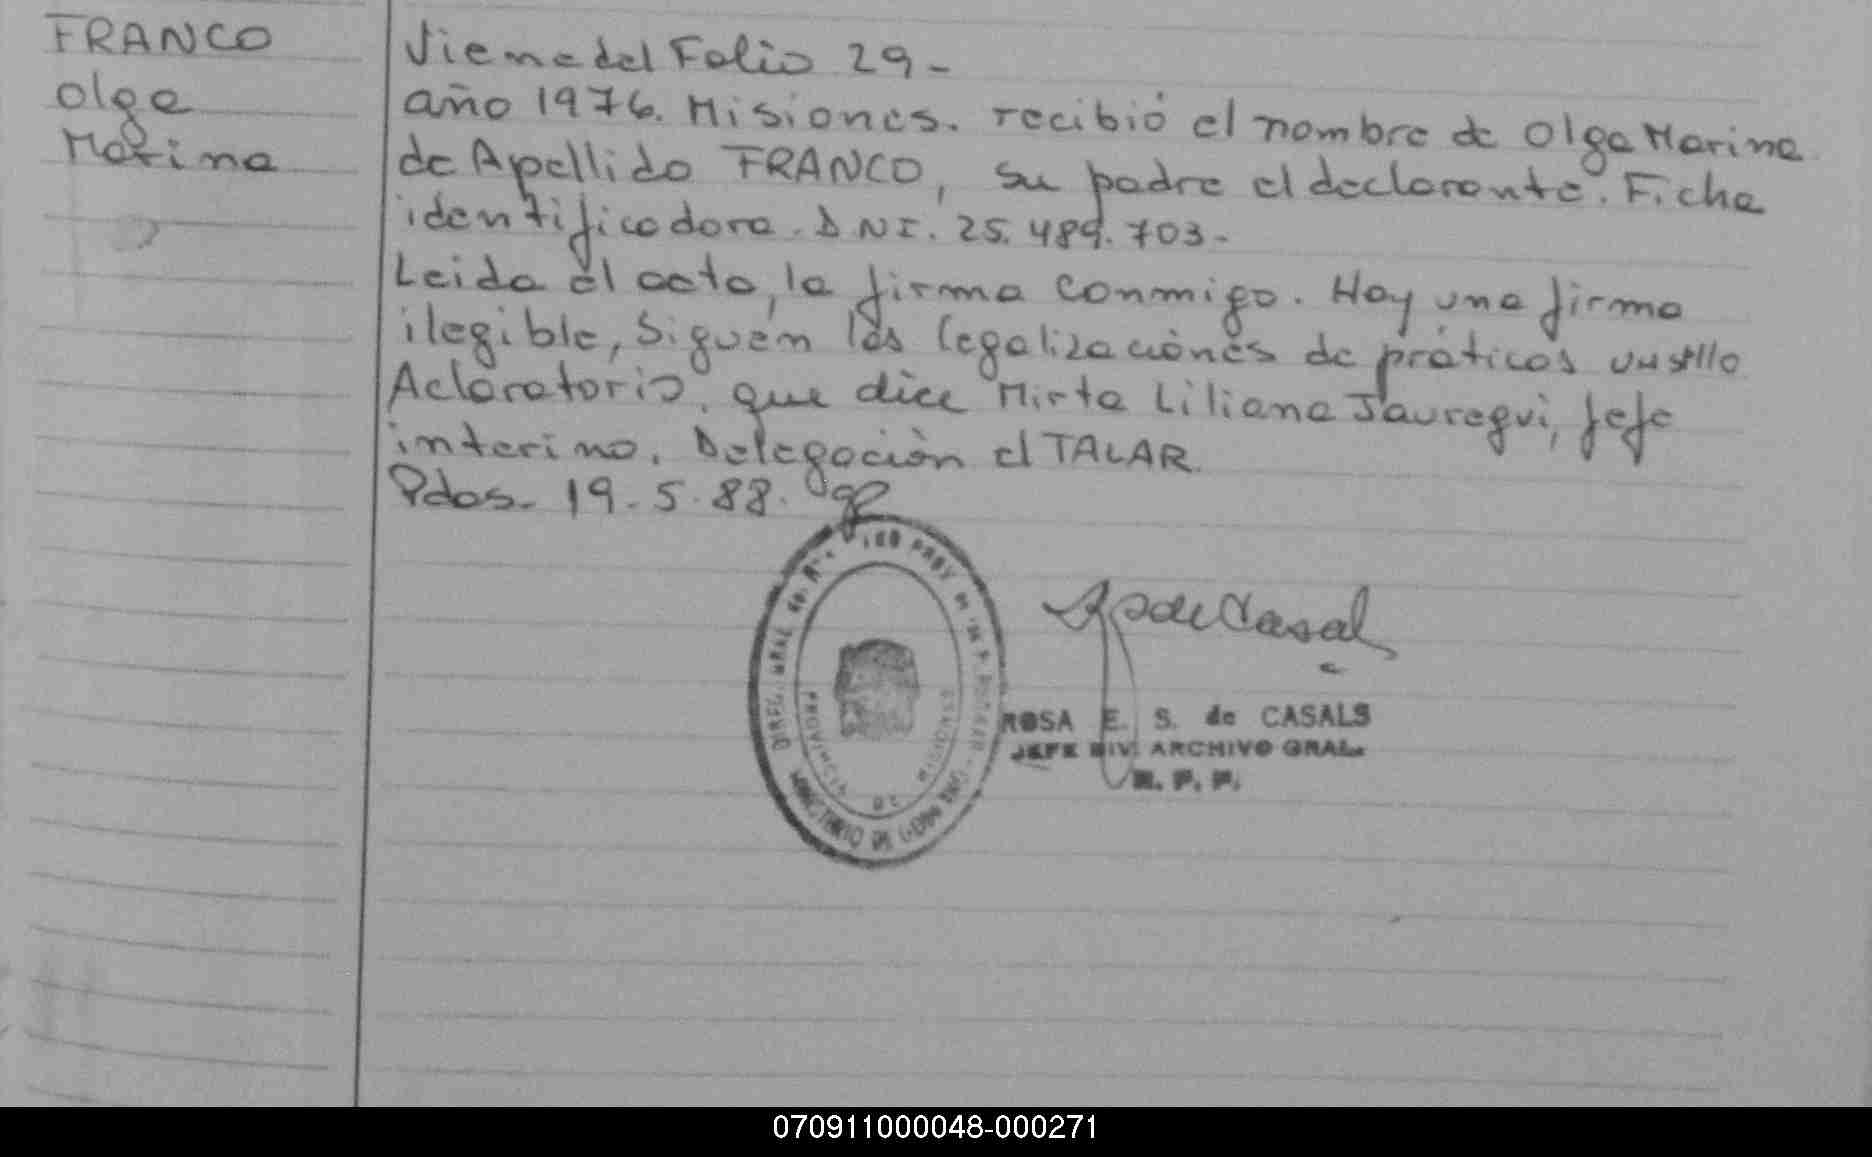 FRANCO
Olga
Marina
Viene del Folio 29-
año 1976. Misiones. recibió el nombre de Olga Marina
de Apellido FRANCO, su padre el declarante. Ficha
identificadora. DNI. 25.489.703-
Leida el acta, la firma conmigo. Hay una firma
ilegible, siguen las legalizaciones de práticas un sello
Aclaratorio, que dice Mirta Liliana Jauregui, Jefe
interino. Delegación el TALAR.
Pdas- 19-5-88.
PROVINCIA DE MISIONES
MINISTERIO DE GOBIERNO
ROSA E. S. de CASALS
JEFE DIV. ARCHIVO GRAL.
R. P. P.
070911000048-000271